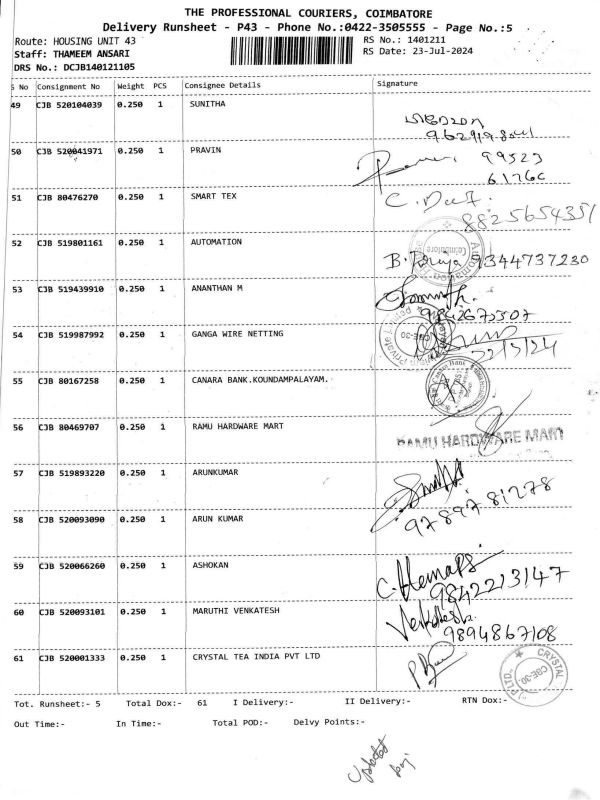 THE PROFESSIONAL COURIERS, COIMBATORE
Delivery Runsheet - P43 - Phone No.:0422-3505555 - Page No.:5
Route: HOUSING UNIT 43
RS No.: 1401211
Staff: THAMEEM ANSARI
RS Date: 23-Jul-2024
DRS No.: DCJB140121105
S No Consignment No Weight PCS Consignee Details Signature
49 CJB 520104039 0.250 1 SUNITHA
50 CJB 520041971 0.250 1 PRAVIN 99523
51 CJB 80476270 0.250 1 SMART TEX
8825654351
52 CJB 519801161 0.250 1 AUTOMATION B. Priya 9344737230
53 CJB 519439910 0.250 1 ANANTHAN M
54 CJB 519987992 0.250 1 GANGA WIRE NETTING
55 CJB 80167258 0.250 1 CANARA BANK.KOUNDAMPALAYAM.
56 CJB 80469707 0.250 1 RAMU HARDWARE MART
RAMU HARDWARE MART
57 CJB 519893220 0.250 1 ARUNKUMAR
9789781278
58 CJB 520093090 0.250 1 ARUN KUMAR
59 CJB 520066260 0.250 1 ASHOKAN
9842213147
60 CJB 520093101 0.250 1 MARUTHI VENKATESH Venkatesh
9894867108
61 CJB 520001333 0.250 1 CRYSTAL TEA INDIA PVT LTD
CRYSTAL
CBE-30.
Tot. Runsheet:- 5 Total Dox:- 61 I Delivery:- II Delivery:- RTN Dox:-
Out Time:- In Time:- Total POD:- Delvy Points:-